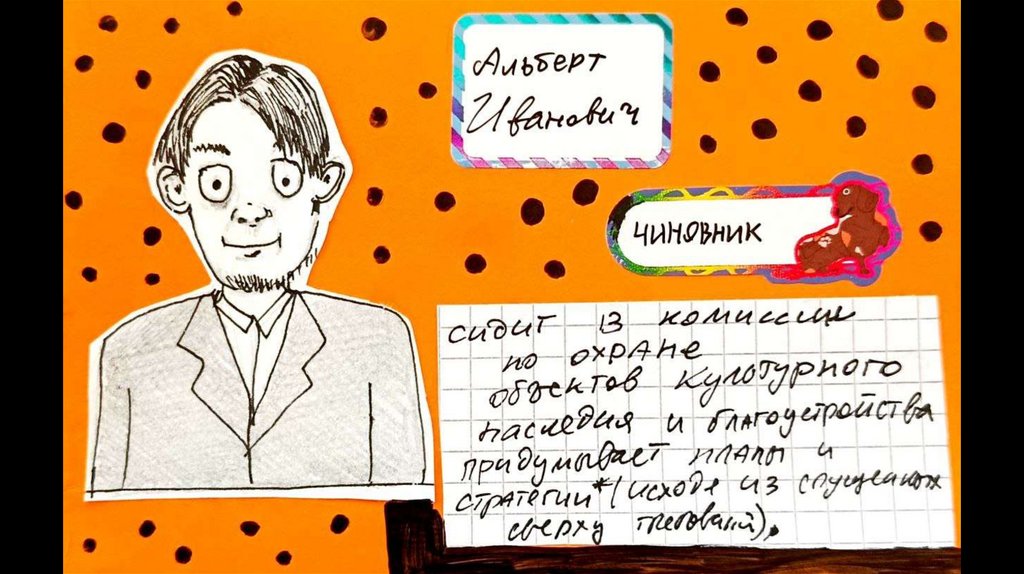 Альберт
Иванович
ЧИНОВНИК
сидит в комиссии
по охране
объектов культурного
наследия и благоустройства
придумывает планы и
стратегии*(исходя из спущенных
сверху требований).